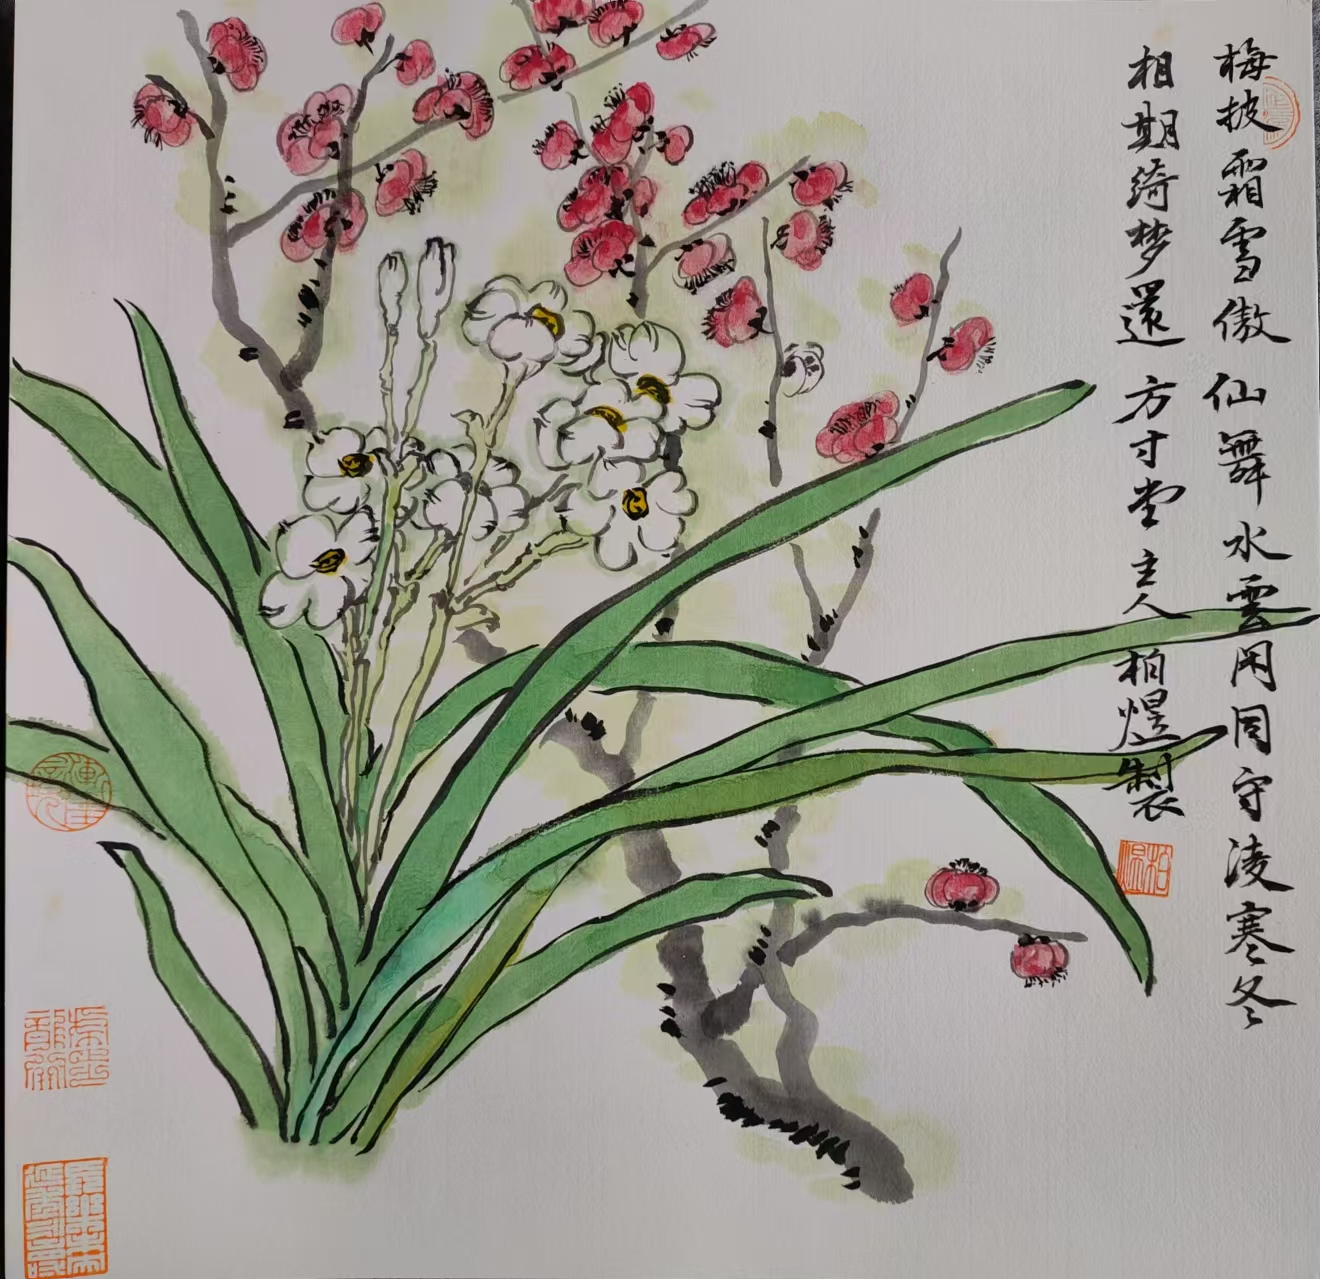 梅披霜雪傲仙舞水雲閑同守凌寒冬
相期綺梦還方寸堂主人柏煜製